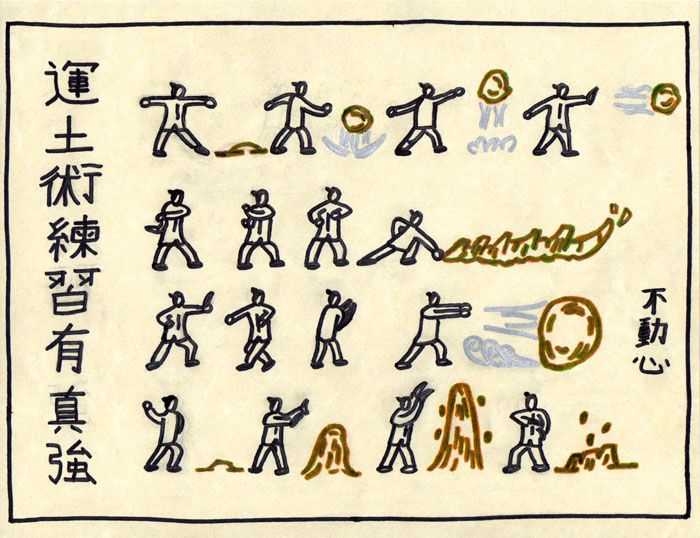 運土術練習有真強
不動心